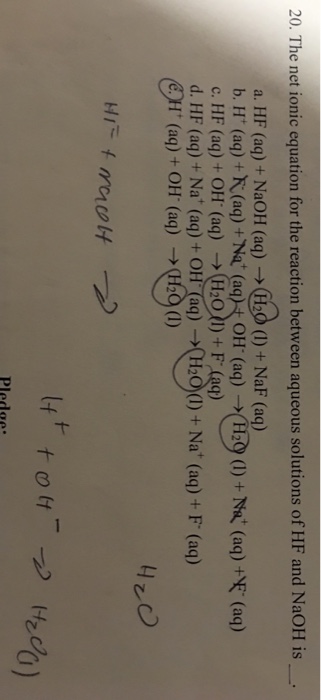 20. The net ionic equation for the reaction between aqueous solutions of HF and NaOH is ___.
a. HF (aq) + NaOH (aq) → H₂O (l) + NaF (aq)
b. H⁺ (aq) + F⁻ (aq) + Na⁺ (aq) + OH⁻ (aq) → H₂O (l) + Na⁺ (aq) + F⁻ (aq)
c. HF (aq) + OH⁻ (aq) → H₂O (l) + F⁻ (aq)
d. HF (aq) + Na⁺ (aq) + OH⁻ (aq) → H₂O (l) + Na⁺ (aq) + F⁻ (aq)
e. H⁺ (aq) + OH⁻ (aq) → H₂O (l)
H₂O
HF + NaOH →
H⁺ + OH⁻ → H₂O(l)
Pledge: